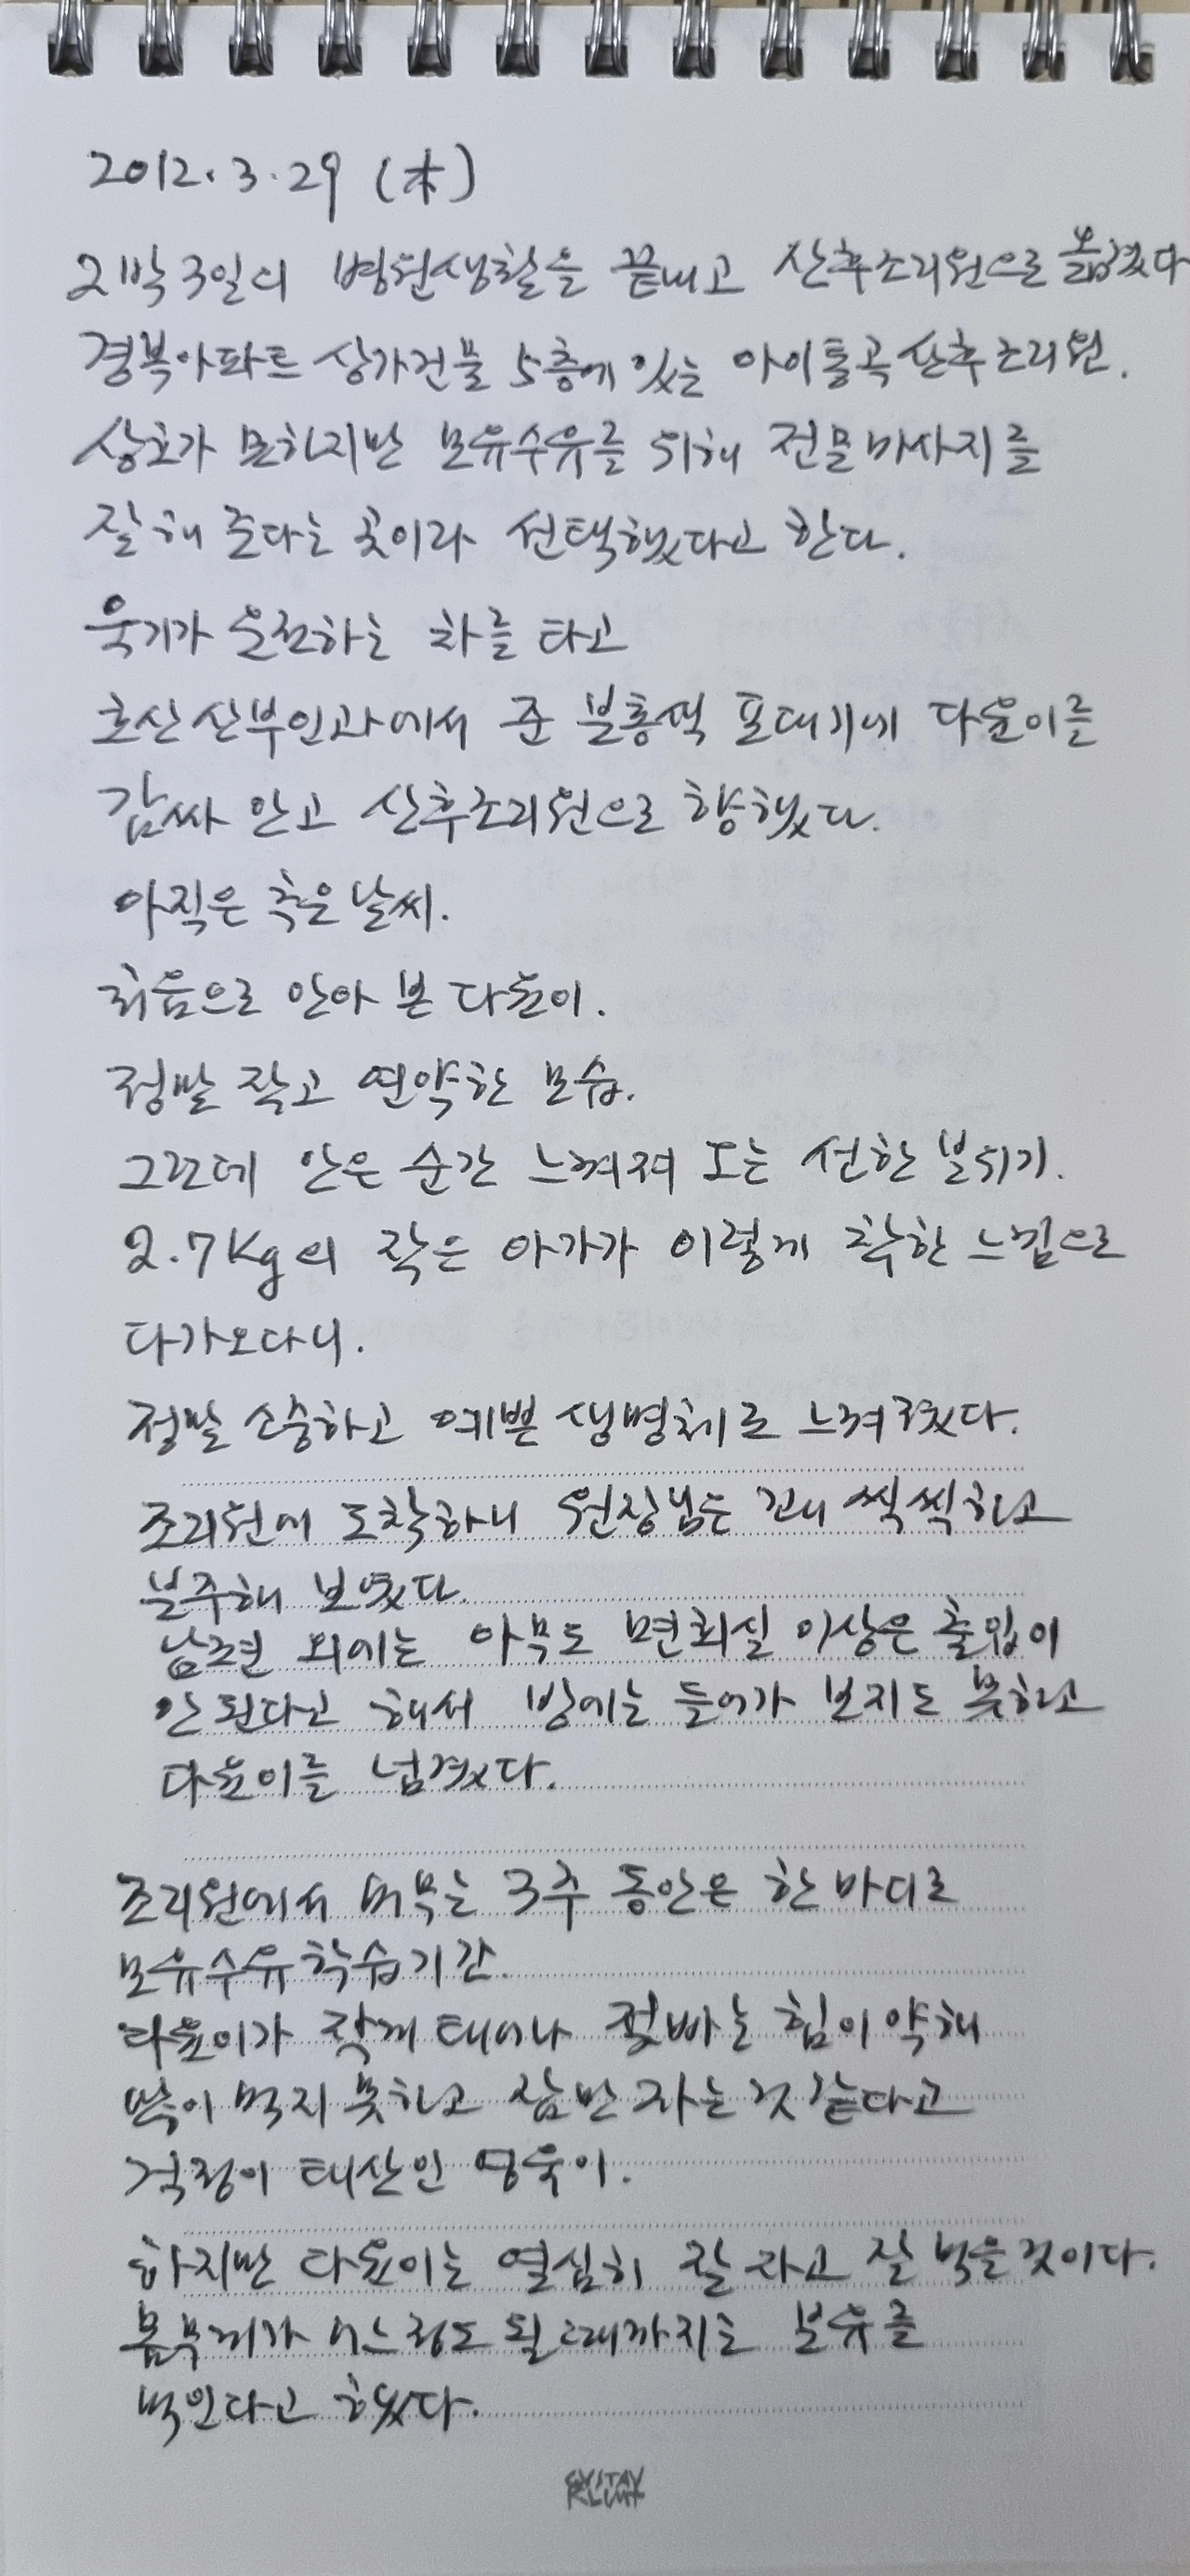 2012. 3. 29 (木)
2박 3일의 병원생활을 끝내고 산후조리원으로 옮겼다
경복아파트 상가건물 5층에 있는 아이통곡 산후조리원.
상호가 묘하지만 모유수유를 위해 전문마사지를
잘 해 준다는 곳이라 선택했다고 한다.
욱기가 운전하는 차를 타고
호산 산부인과에서 준 분홍색 포대기에 다윤이를
감싸 안고 산후조리원으로 향했다.
아직은 추운 날씨.
처음으로 안아 본 다윤이.
정말 작고 연약한 모습.
그런데 안은 순간 느껴져 오는 선한 분위기.
2.7Kg의 작은 아가가 이렇게 착한 느낌으로
다가오다니.
정말 소중하고 예쁜 생명체로 느껴졌다.
조리원에 도착하니 원장님은 꽤 씩씩하고
분주해 보였다.
남편 외에는 아무도 면회실 이상은 출입이
안 된다고 해서 방에는 들어가 보지도 못하고
다윤이를 넘겼다.
조리원에서 머무는 3주 동안은 한 마디로
모유수유 학습기간.
다윤이가 작게 태어나 젖빠는 힘이 약해
많이 먹지 못하고 잠만 자는 것 같다고
걱정이 태산인 영욱이.
하지만 다윤이는 열심히 잘 자고 잘 먹을 것이다.
몸무게가 어느정도 될 때까지는 분유를
먹인다고 했다.
GUSTAV
KLIMT